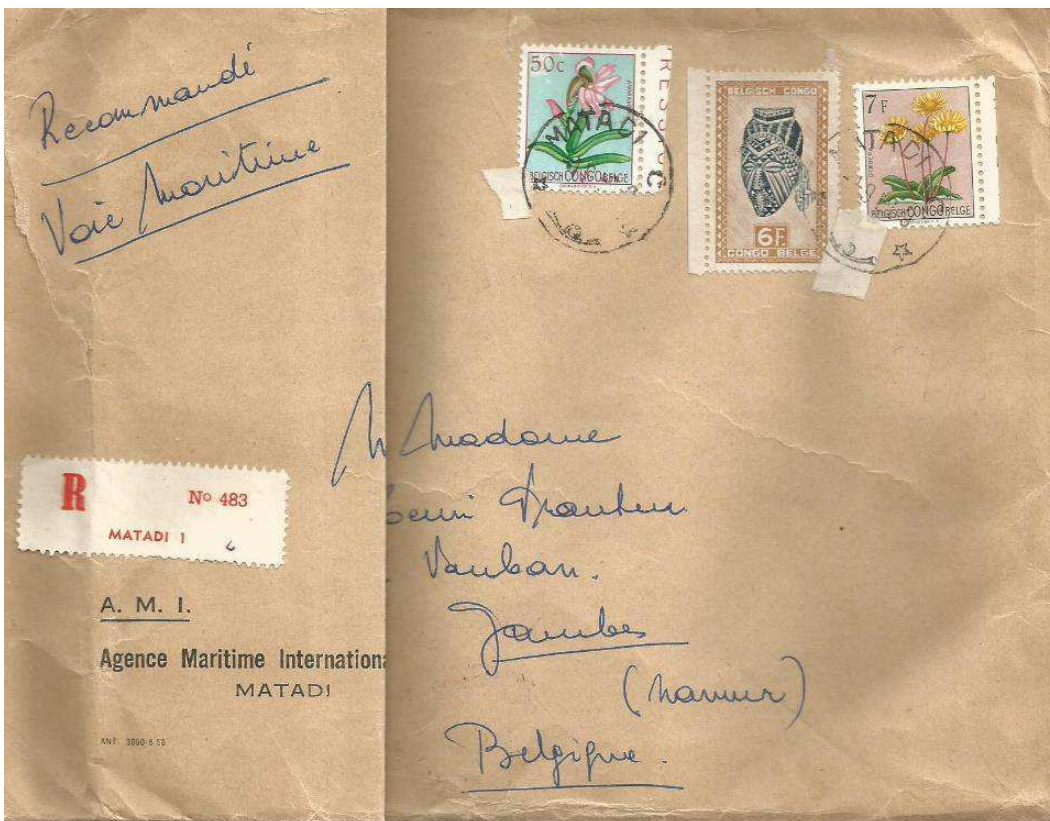 Recommandé
Voie Maritime
50c
BELGISCH CONGO BELGE
MATADI
C
BELGISCH CONGO
6F.
CONGO BELGE
7F
BELGISCH CONGO BELGE
R
No 483
MATADI 1
A. M. I.
Agence Maritime Internationa
MATADI
ANT. 3000-6 58
Madame
Vauban.
Jambes
(Namur)
Belgique.